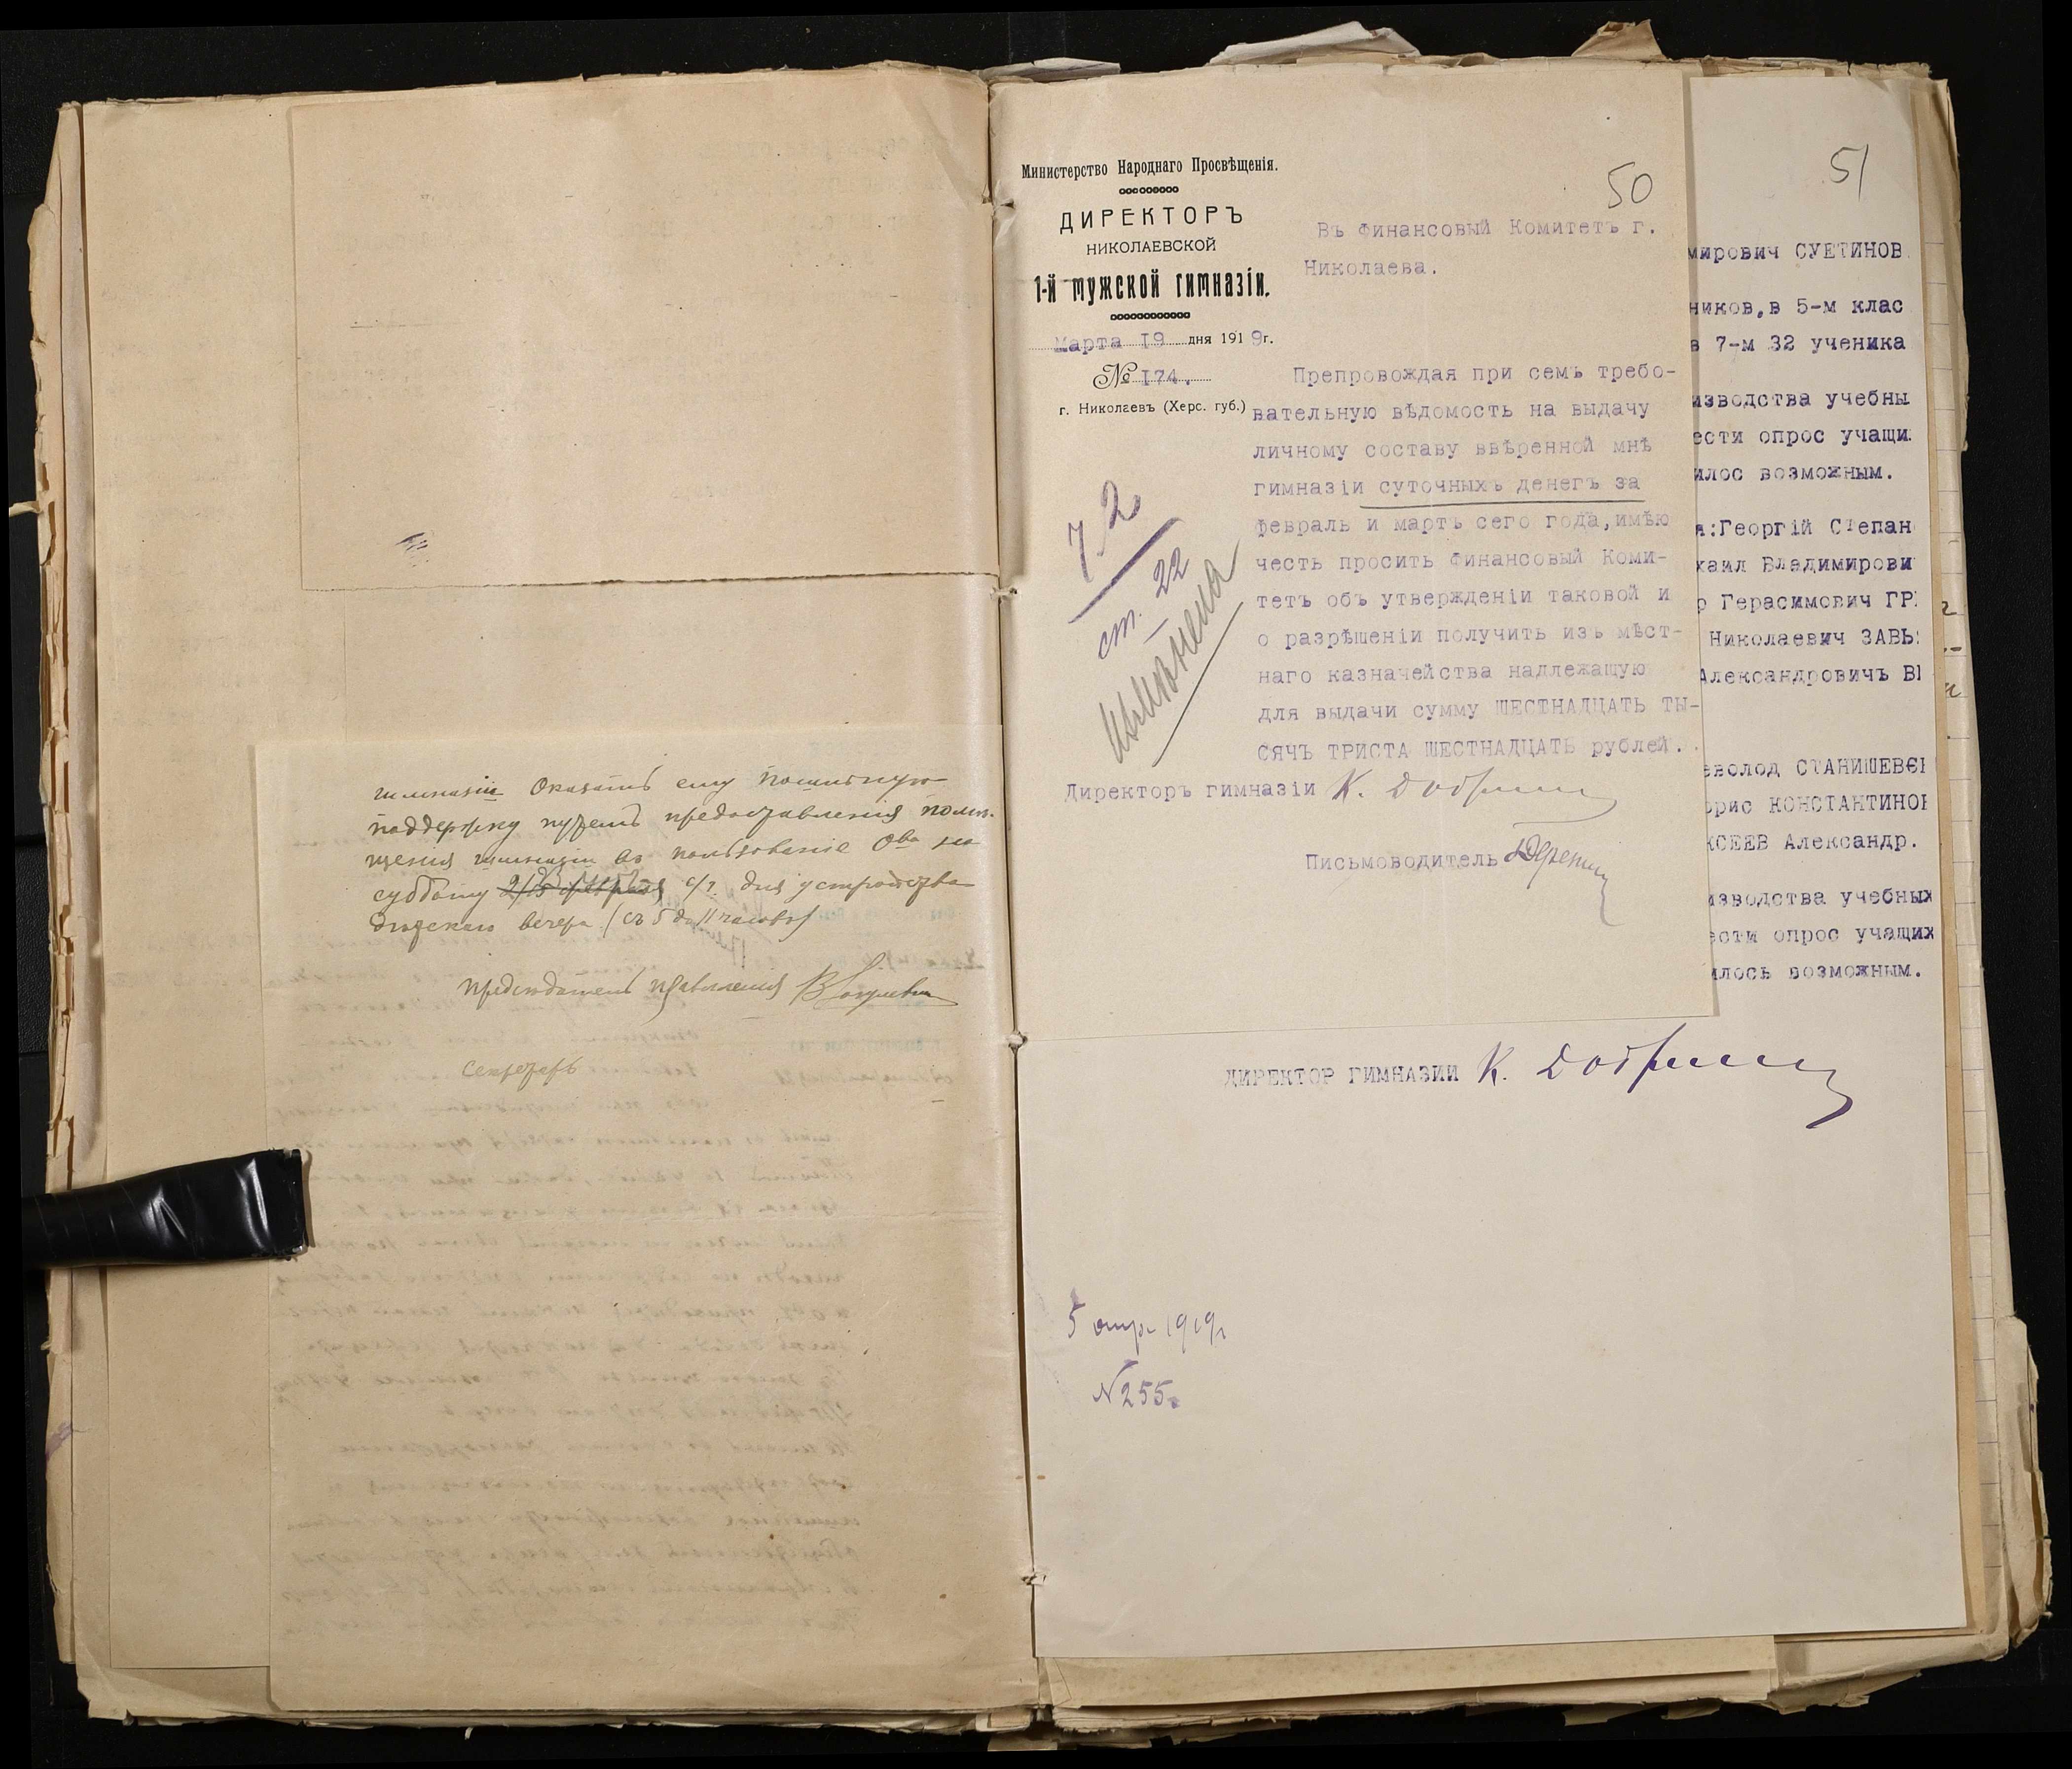 гимназiи оказать ему посильную
поддержку путемъ предоставленiя помѣ-
щенiя гимназiи въ пользованiе О-ва на
субботу с/г. для устройства
дѣтскаго вечера (съ 5 до 11 часовъ)
Предсѣдатель правленiя
Секретарь
Министерство Народнаго Просвѣщенiя.
ДИРЕКТОРЪ
НИКОЛАЕВСКОЙ
1-й мужской гимназiи.
Марта 19 дня 1919г.
№ 174.
г. Николаевъ (Херс. губ.)
50
Въ Финансовый Комитетъ г.
Николаева.
Препровождая при семъ требо-
вательную вѣдомость на выдачу
личному составу ввѣренной мнѣ
гимназiи суточныхъ денегъ за
февраль и мартъ сего года,имѣю
честь просить Финансовый Коми-
тетъ объ утвержденiи таковой и
о разрѣшенiи получить изъ мѣст-
наго казначейства надлежащую
для выдачи сумму ШЕСТНАДЦАТЬ ТЫ-
СЯЧЪ ТРИСТА ШЕСТНАДЦАТЬ рублей.
72
ст. 22
Директоръ гимназiи К.
Письмоводитель
51
мирович СУЕТИНОВ
ников,в 5-м клас
в 7-м 32 ученика
изводства учебны
ести опрос учащи
илос возможным.
я:Георгiй Степан
хаил Владимирови
р Герасимович ГР
Николаевич ЗАВЬ
Александровичъ В
еволод СТАНИШЕВ
орис КОНСТАНТИНО
КСЕЕВ Александр.
изводства учебных
ести опрос учащих
илось возможным.
ДИРЕКТОР ГИМНАЗИИ К.
5 апр. 1919г
N 255.